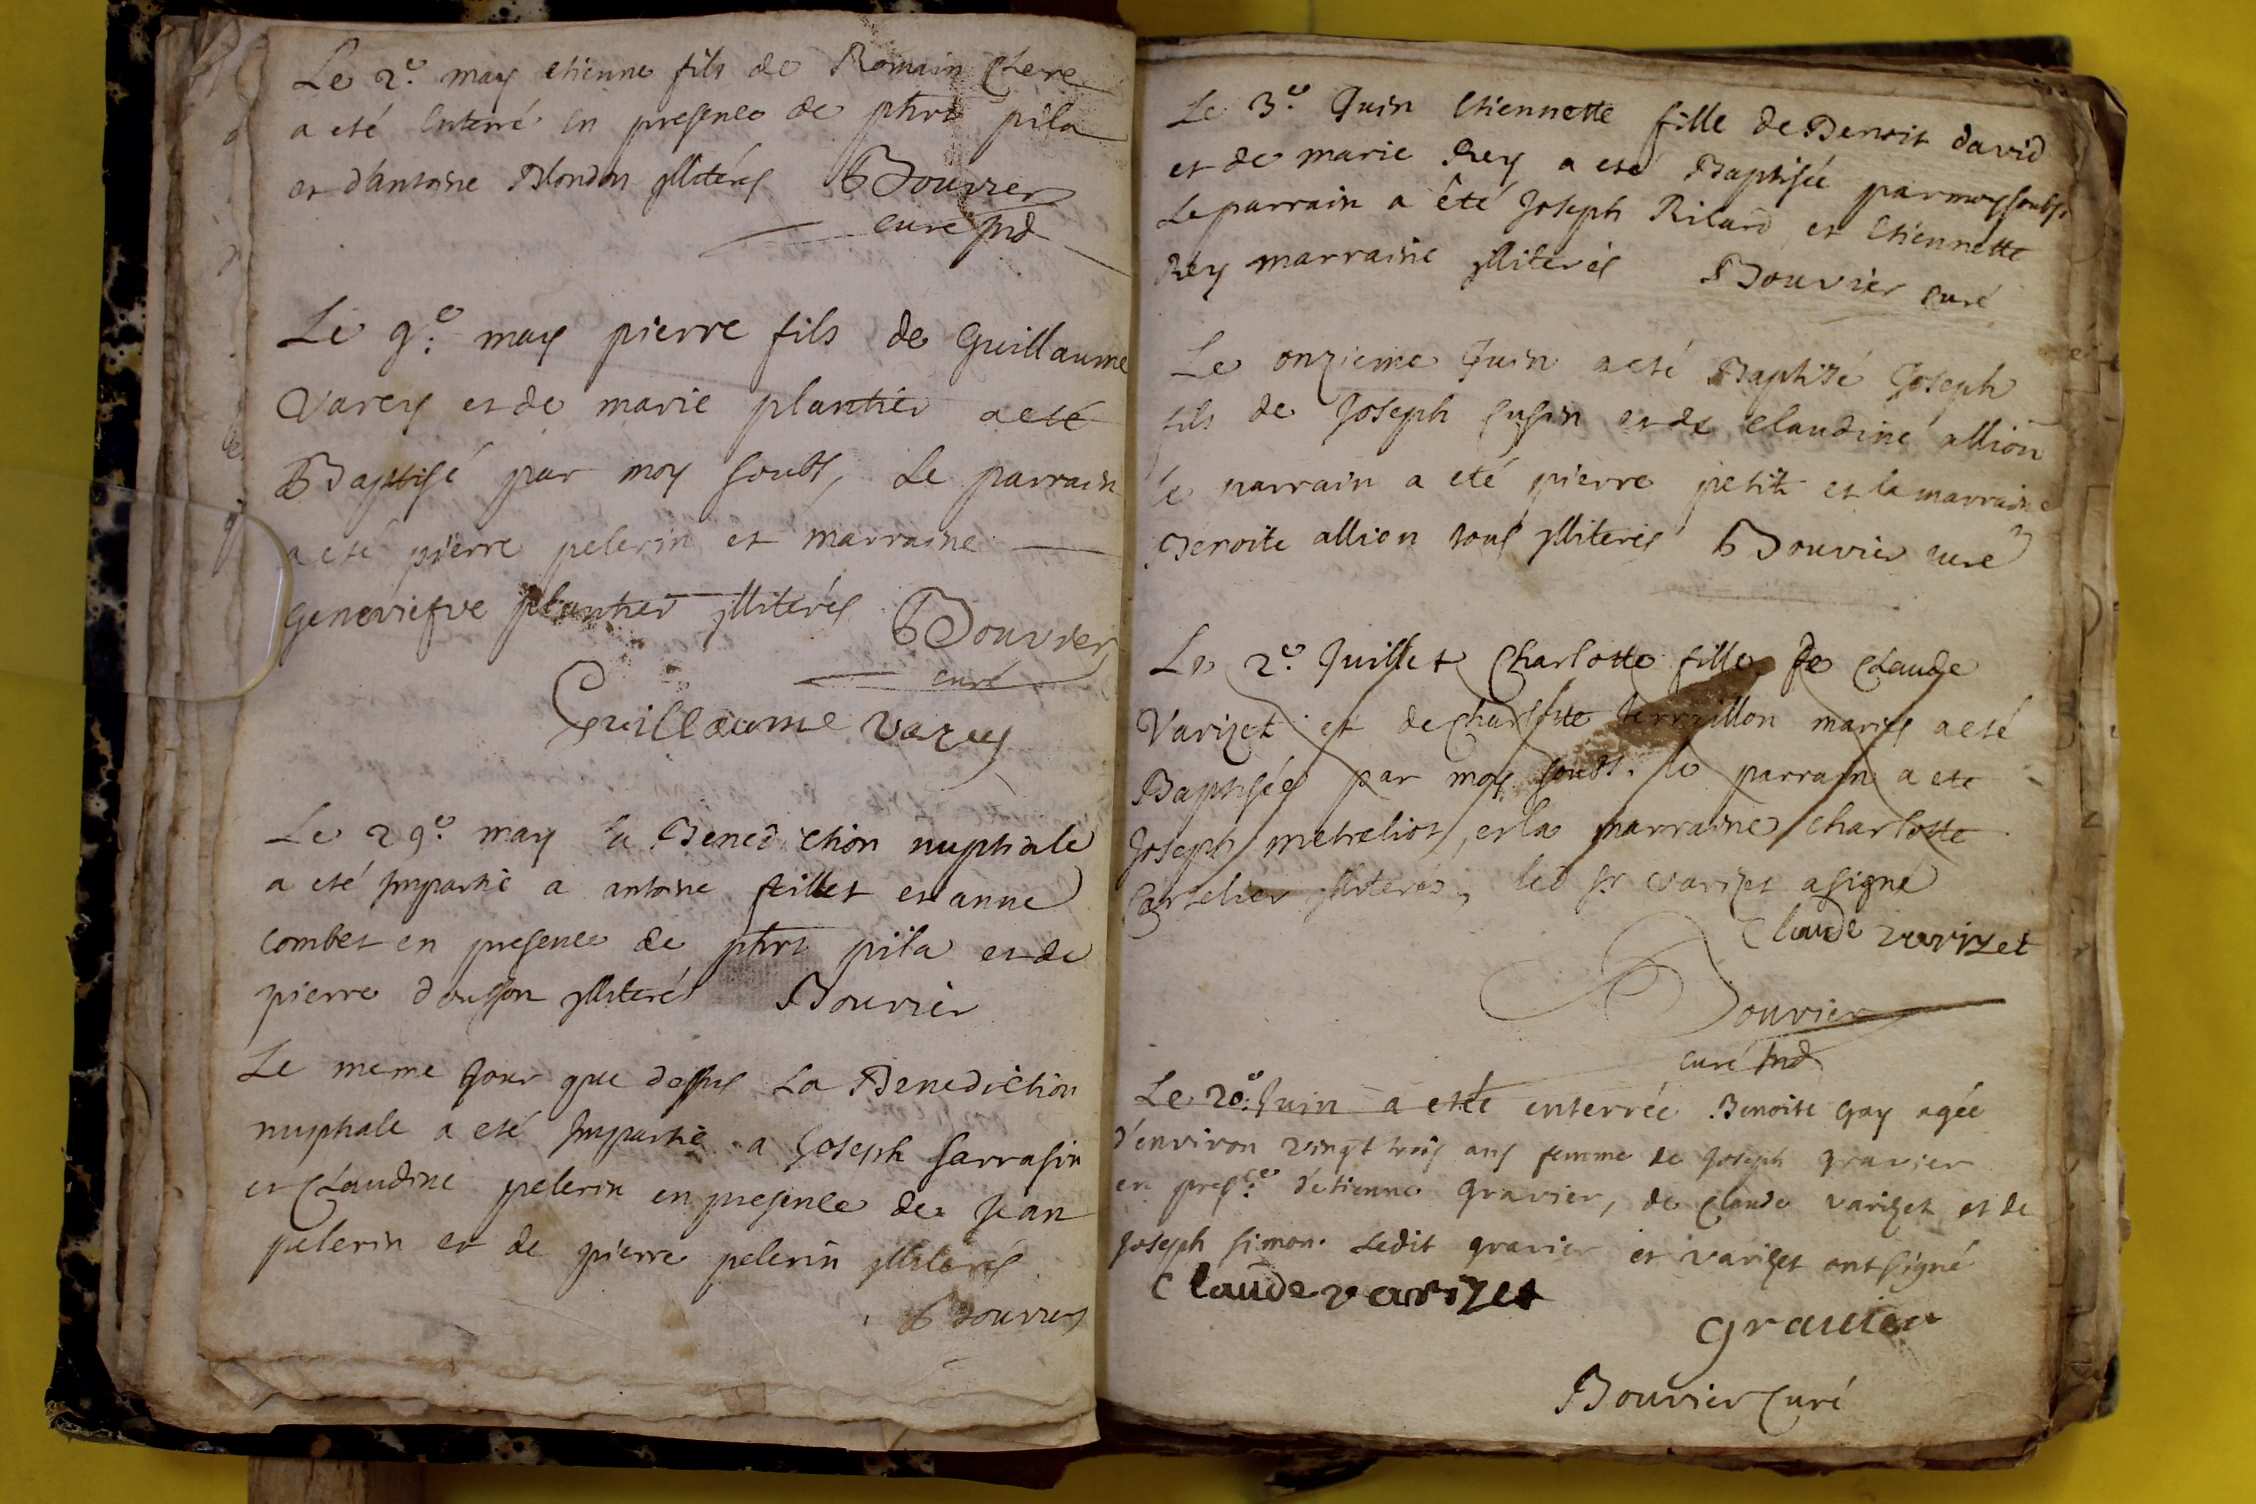 Le 2e. may etienne fils de Romain Clere
a eté Enterré En presence de phrt pila
et d'antoine Blondon jlliterés Bouvier
curé jnd
Le 9e. may pierre fils de Guillaume
Varey et de marie plantier a eté
Baptisé par moy soubs, Le parrain
a eté pierre pelerin et marraine
geneviefve plantier jlliterés Bouvier
curé
Guillaume varey
Le 29e. may la Benediction nuptiale
a eté Jmpartie a antoine et anne
combet en presence de phrt pila et de
pierre jlliterés Bouvier
Le meme Jour que dessus La Benediction
nuptiale a eté Jmpartie a Joseph Sarrasin
et Claudine pelerin en presence de Jean
pelerin et de pierre pelerin jlliterés
Bouvier
Le 3e. Juin Etiennette fille de Benoit david
et de marie Rey a eté Baptisée par moy soubs
Le parrain a êté Joseph Rilard et Etiennette
Rey marraine jlliterés Bouvier curé
Le onzieme Juin a eté Baptisé Joseph
fils de Joseph Cusin et de Claudine allion
le parrain a eté pierre petit et la marraine
Benoite allion tous jlliterés Bouvier curé
Le 2e. Juillet Charlotte fille de Claude
Varizet et de Charlotte terraillon mariés a eté
Baptisée par moy soubs. le parrain a eté
Joseph metreliot, et la marraine Charlotte
jlliterés, led sr varizet a signé
Claude varizet
Bouvier
curé jnd
Le 20e. Juin a esté enterrée Benoite Gay agée
d'environ vingt trois ans femme de Joseph gravier
en presce. d'etienne gravier, de Claude varizet et de
Joseph simon. Ledit gravier et varizet ont signé
Claude varizet
gravier
Bouvier Curé